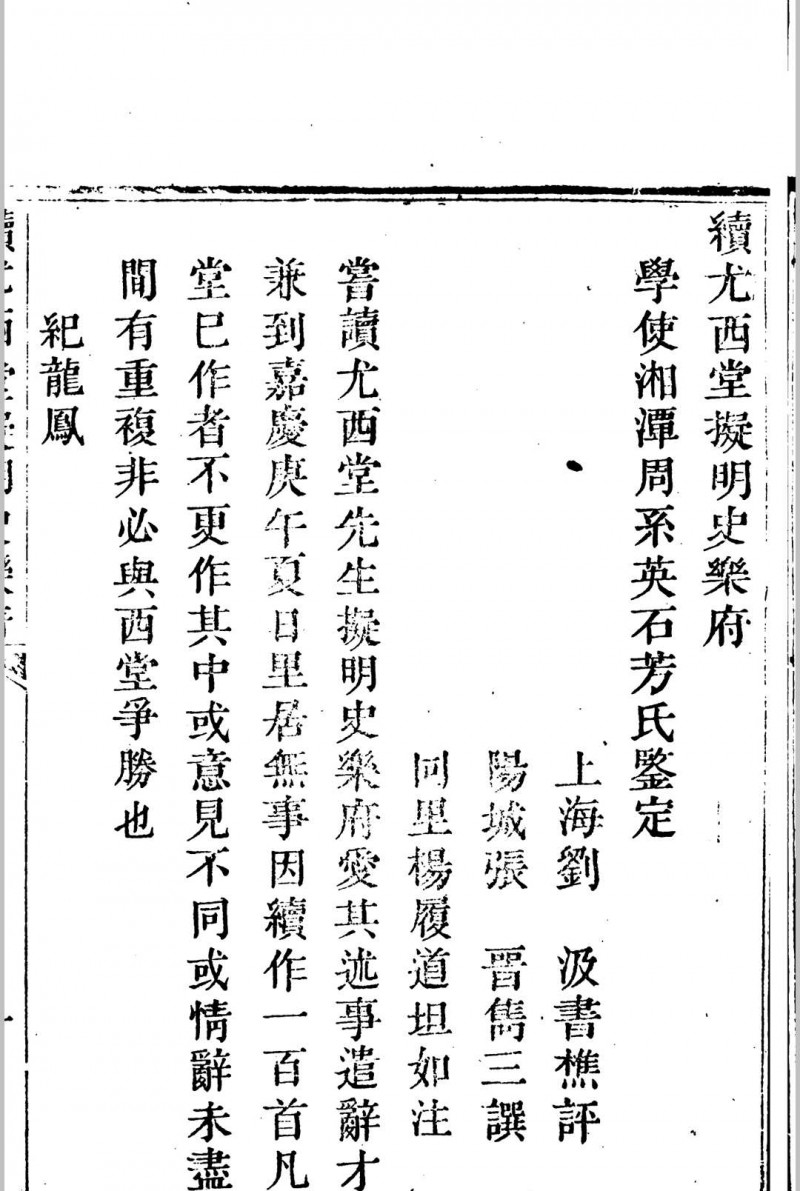 續尤西堂擬明史樂府
學使湘潭周系英石芳氏鑒定
上海劉　汲書樵評
陽城張　晉雋三譔
同里楊履道坦如注
嘗讀尤西堂先生擬明史樂府愛其述事遣辭才
兼到嘉慶庚午夏日里居無事因續作一百首凡
堂已作者不更作其中或意見不同或情辭未盡
間有重複非必與西堂爭勝也
紀龍鳳
續尤西堂擬明史樂府
一